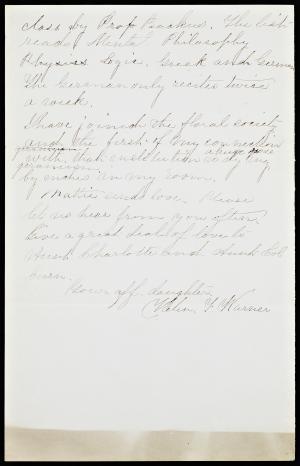 class by Prof Backus. The last
reads Mental Philosophy
Physics Logic. Greek and German
The German only recites twice
a week.
I have joined the floral society
and the first of my connection
with that institution is a huge
geranium dying
by inches in my room.
Mattie sends love. Please
let us hear from you often.
Give a great deal of love to
Aunt Charlotte and Aunt
Your aff. daughter
Helen F Warner